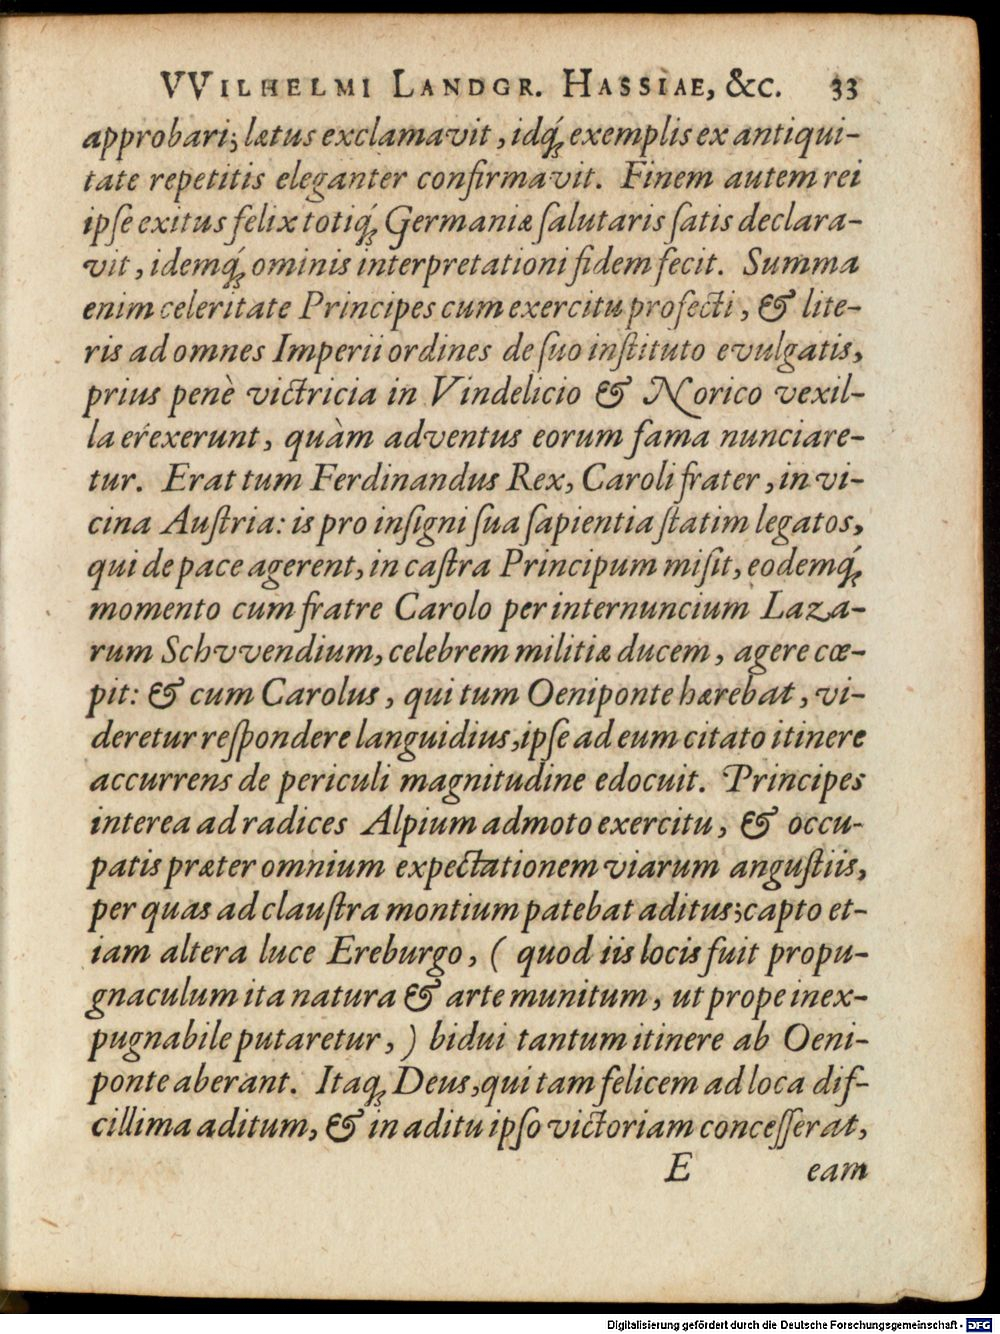 VVILHELMI LANDGR. HASSIAE, &c. 33
approbari; lætus exclamavit, idq́ꝫ exemplis ex antiqui-
tate repetitis eleganter confirmavit. Finem autem rei
ipſe exitus felix totiq́ꝫ Germaniæ ſalutaris ſatis declara-
vit, idemq́ꝫ ominis interpretationi fidem fecit. Summa
enim celeritate Principes cum exercitu profecti, & lite-
ris ad omnes Imperii ordines de ſuo inſtituto evulgatis,
prius penè victricia in Vindelicio & Norico vexil-
la erexerunt, quàm adventus eorum fama nunciare-
tur. Erat tum Ferdinandus Rex, Caroli frater, in vi-
cina Auſtria: is pro inſigni ſua ſapientia ſtatim legatos,
qui de pace agerent, in caſtra Principum miſit, eodemq́ꝫ
momento cum fratre Carolo per internuncium Laza-
rum Schvvendium, celebrem militiæ ducem, agere cœ-
pit: & cum Carolus, qui tum Oeniponte hærebat, vi-
deretur reſpondere languidius, ipſe ad eum citato itinere
accurrens de periculi magnitudine edocuit. Principes
interea ad radices Alpium admoto exercitu, & occu-
patis præter omnium expectationem viarum anguſtiis,
per quas ad clauſtra montium patebat aditus; capto et-
iam altera luce Ereburgo, ( quod iis locis fuit propu-
gnaculum ita natura & arte munitum, ut prope inex-
pugnabile putaretur, ) bidui tantum itinere ab Oeni-
ponte aberant. Itaqꝫ Deus, qui tam felicem ad loca dif-
cillima aditum, & in aditu ipſo victoriam conceſſerat,
E eam
Digitalisierung gefördert durch die Deutsche Forschungsgemeinschaft - DFG